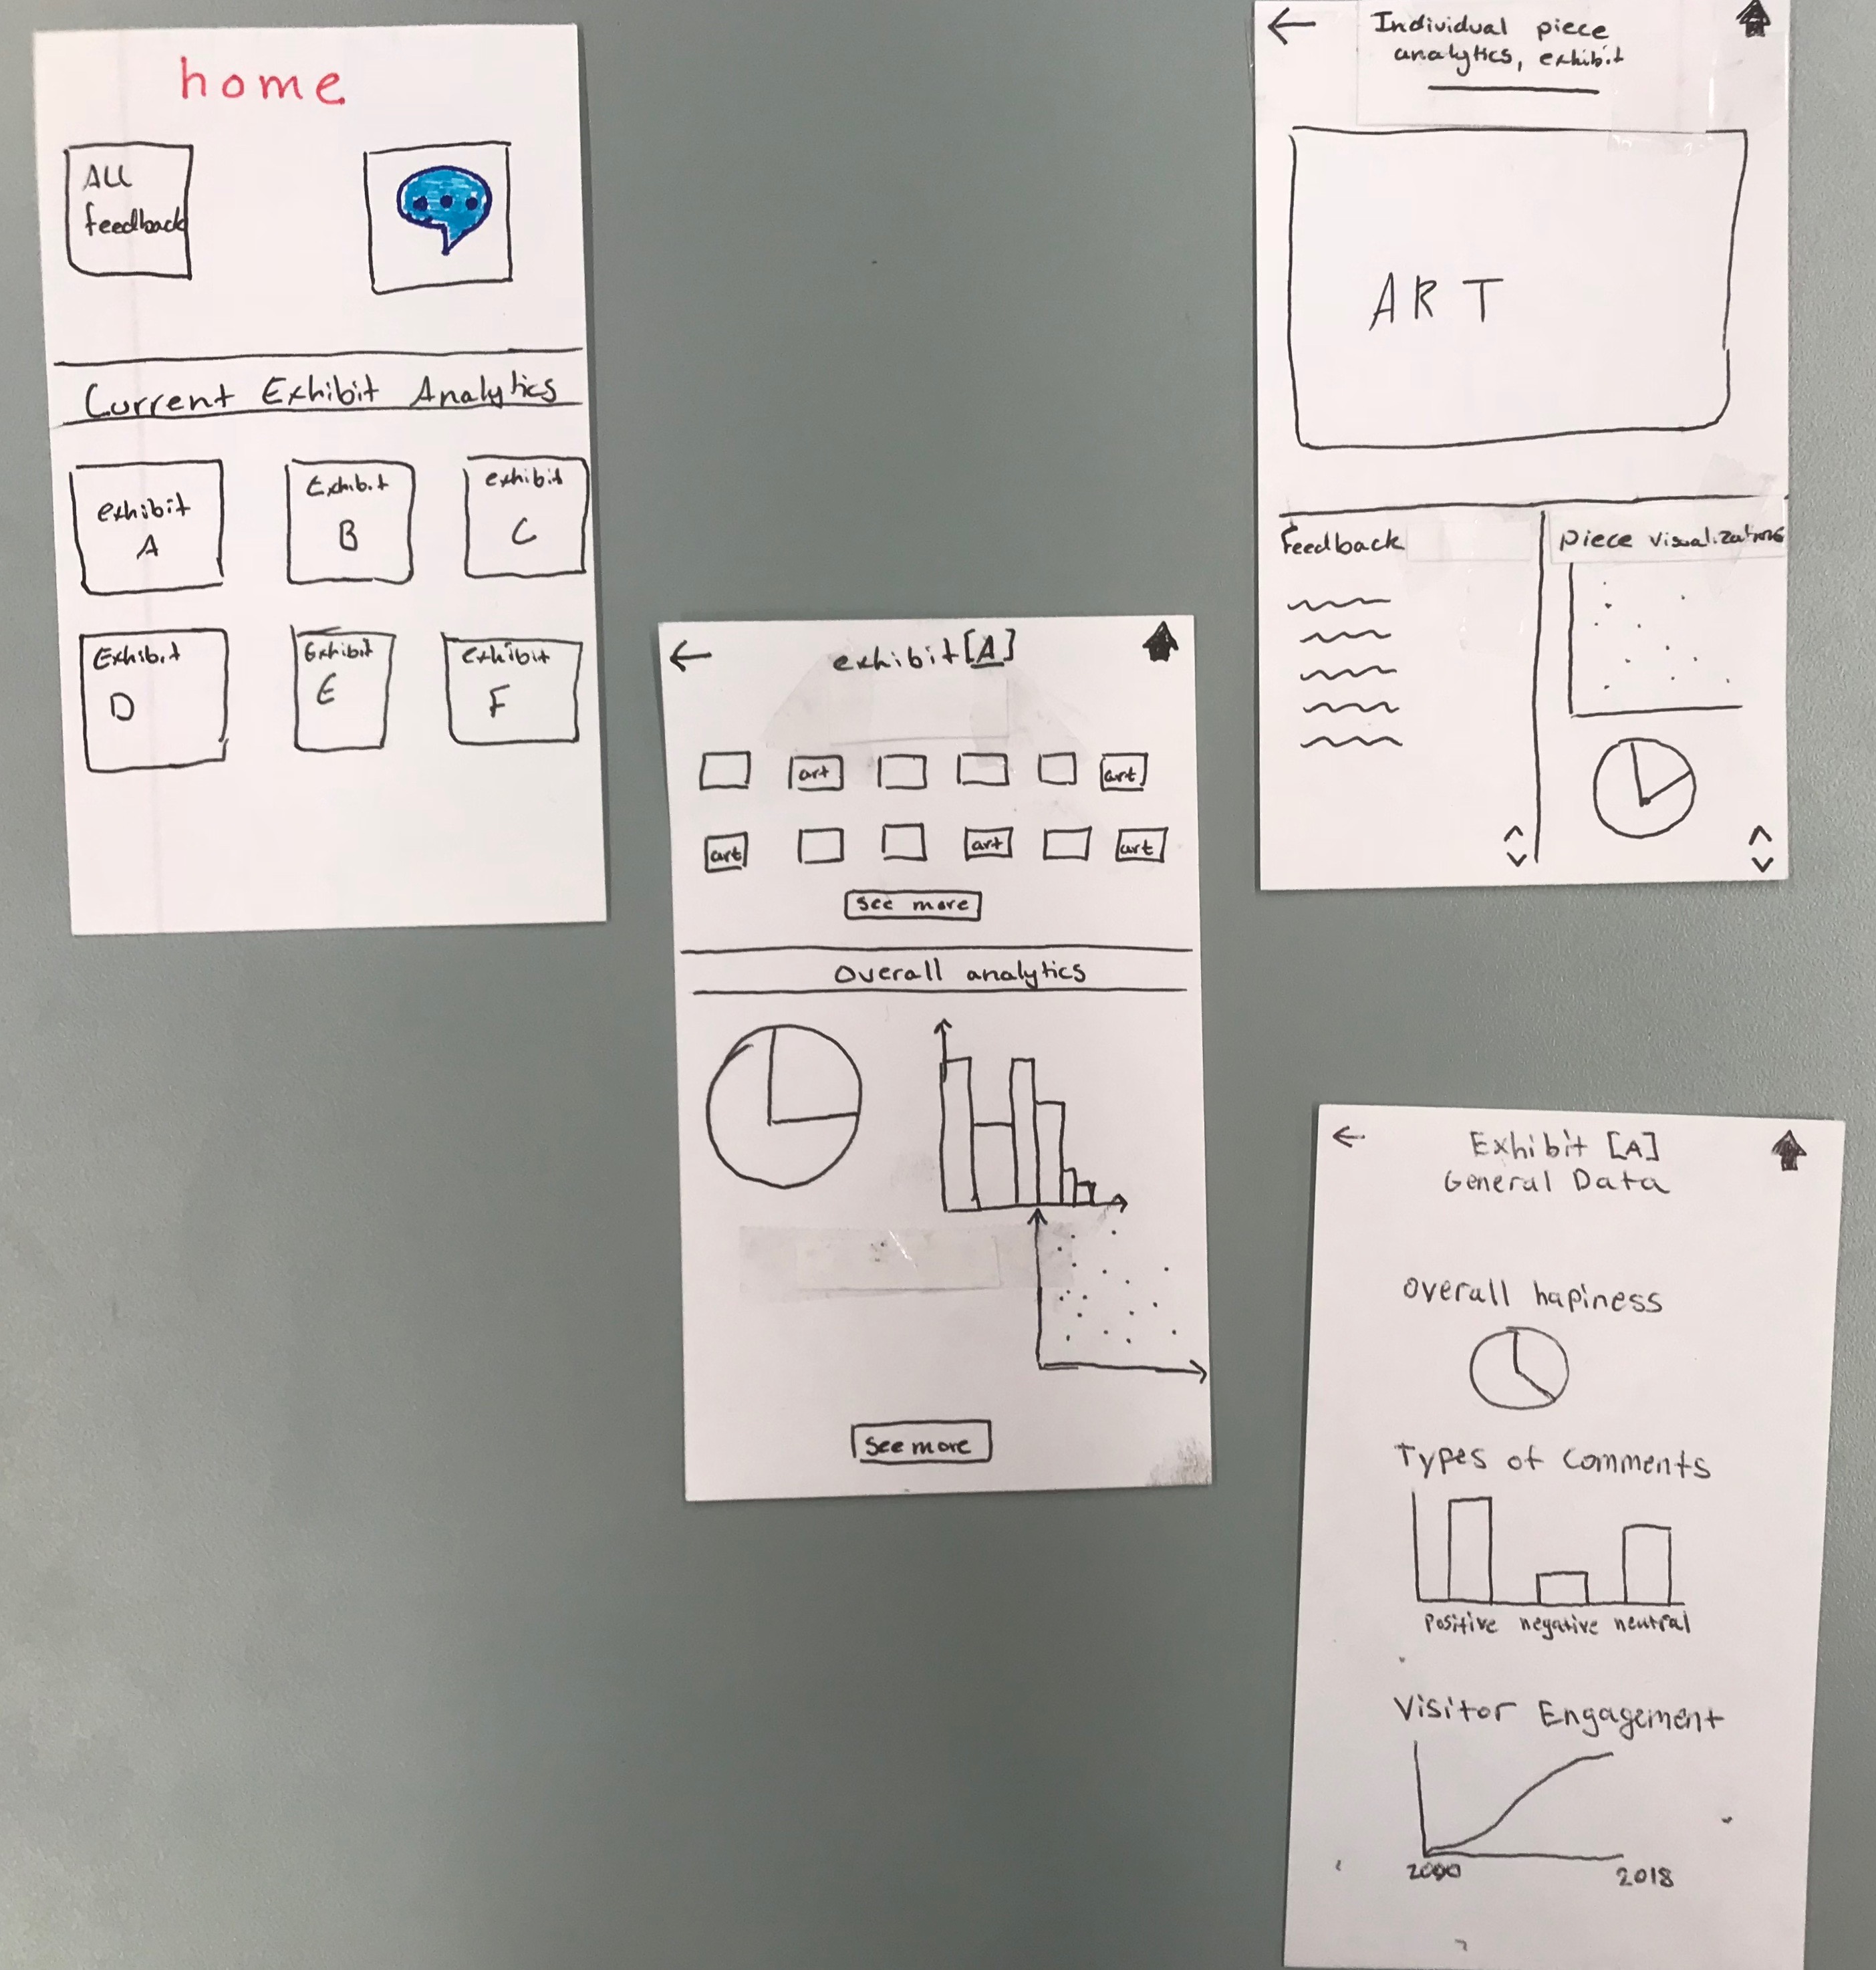 home
ALL
feedback
Current Exhibit Analytics
exhibit
A
Exhibit
B
exhibit
C
Exhibit
D
Exhibit
E
exhibit
F
exhibit [A]
art
art
art
art
art
see more
Overall analytics
see more
Individual piece
analytics, exhibit
ART
Feedback
piece visualizations
Exhibit [A]
General Data
Overall hapiness
Types of Comments
positive negative neutral
Visitor Engagement
2000 2018